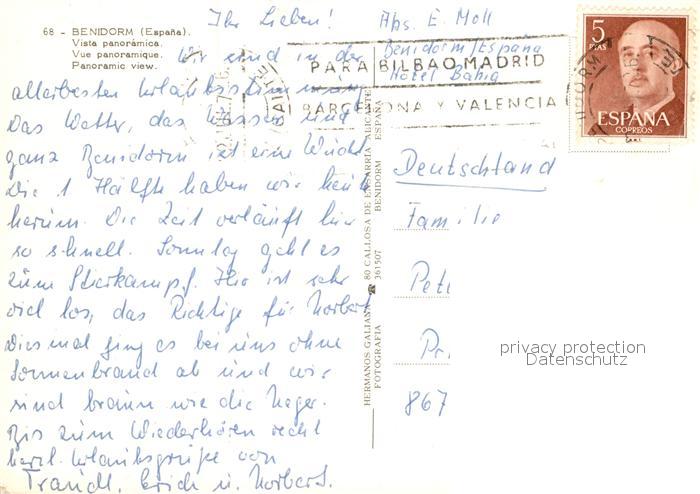 68 - BENIDORM (España).
Vista panorámica.
Vue panoramique.
Panoramic view.
Ihr Lieben!
Wir sind in der
allerbesten Urlaubsstimmung
Das Wetter, das Wasser und
ganz Benidorm ist eine Wucht.
Die 1 Hälfte haben wir heute
herum. Die Zeit verläuft hier
so schnell. Sonntag geht es
zum Stierkampf. Hier ist sehr
viel los, das Richtige für Norbert
Diesmal ging es bei uns ohne
Sonnenbrand ab und wir
sind braun wie die Neger.
Bis zum Wiederhören recht
herzl. Urlaubsgrüße von
Traudl, Erich u. Norbert.
Abs. E. Moll
Benidorm/España
Hotel Bahia
PARA BILBAO MADRID
BARCELONA Y VALENCIA
5
PTAS
ESPAÑA
CORREOS
HERMANOS GALIANA ☎ 80 CALLOSA DE ENSARRIA ALICANTE
FOTOGRAFIA 361507 BENIDORM ESPAÑA
Deutschland
Familie
Pet
Pr
867
privacy protection
Datenschutz